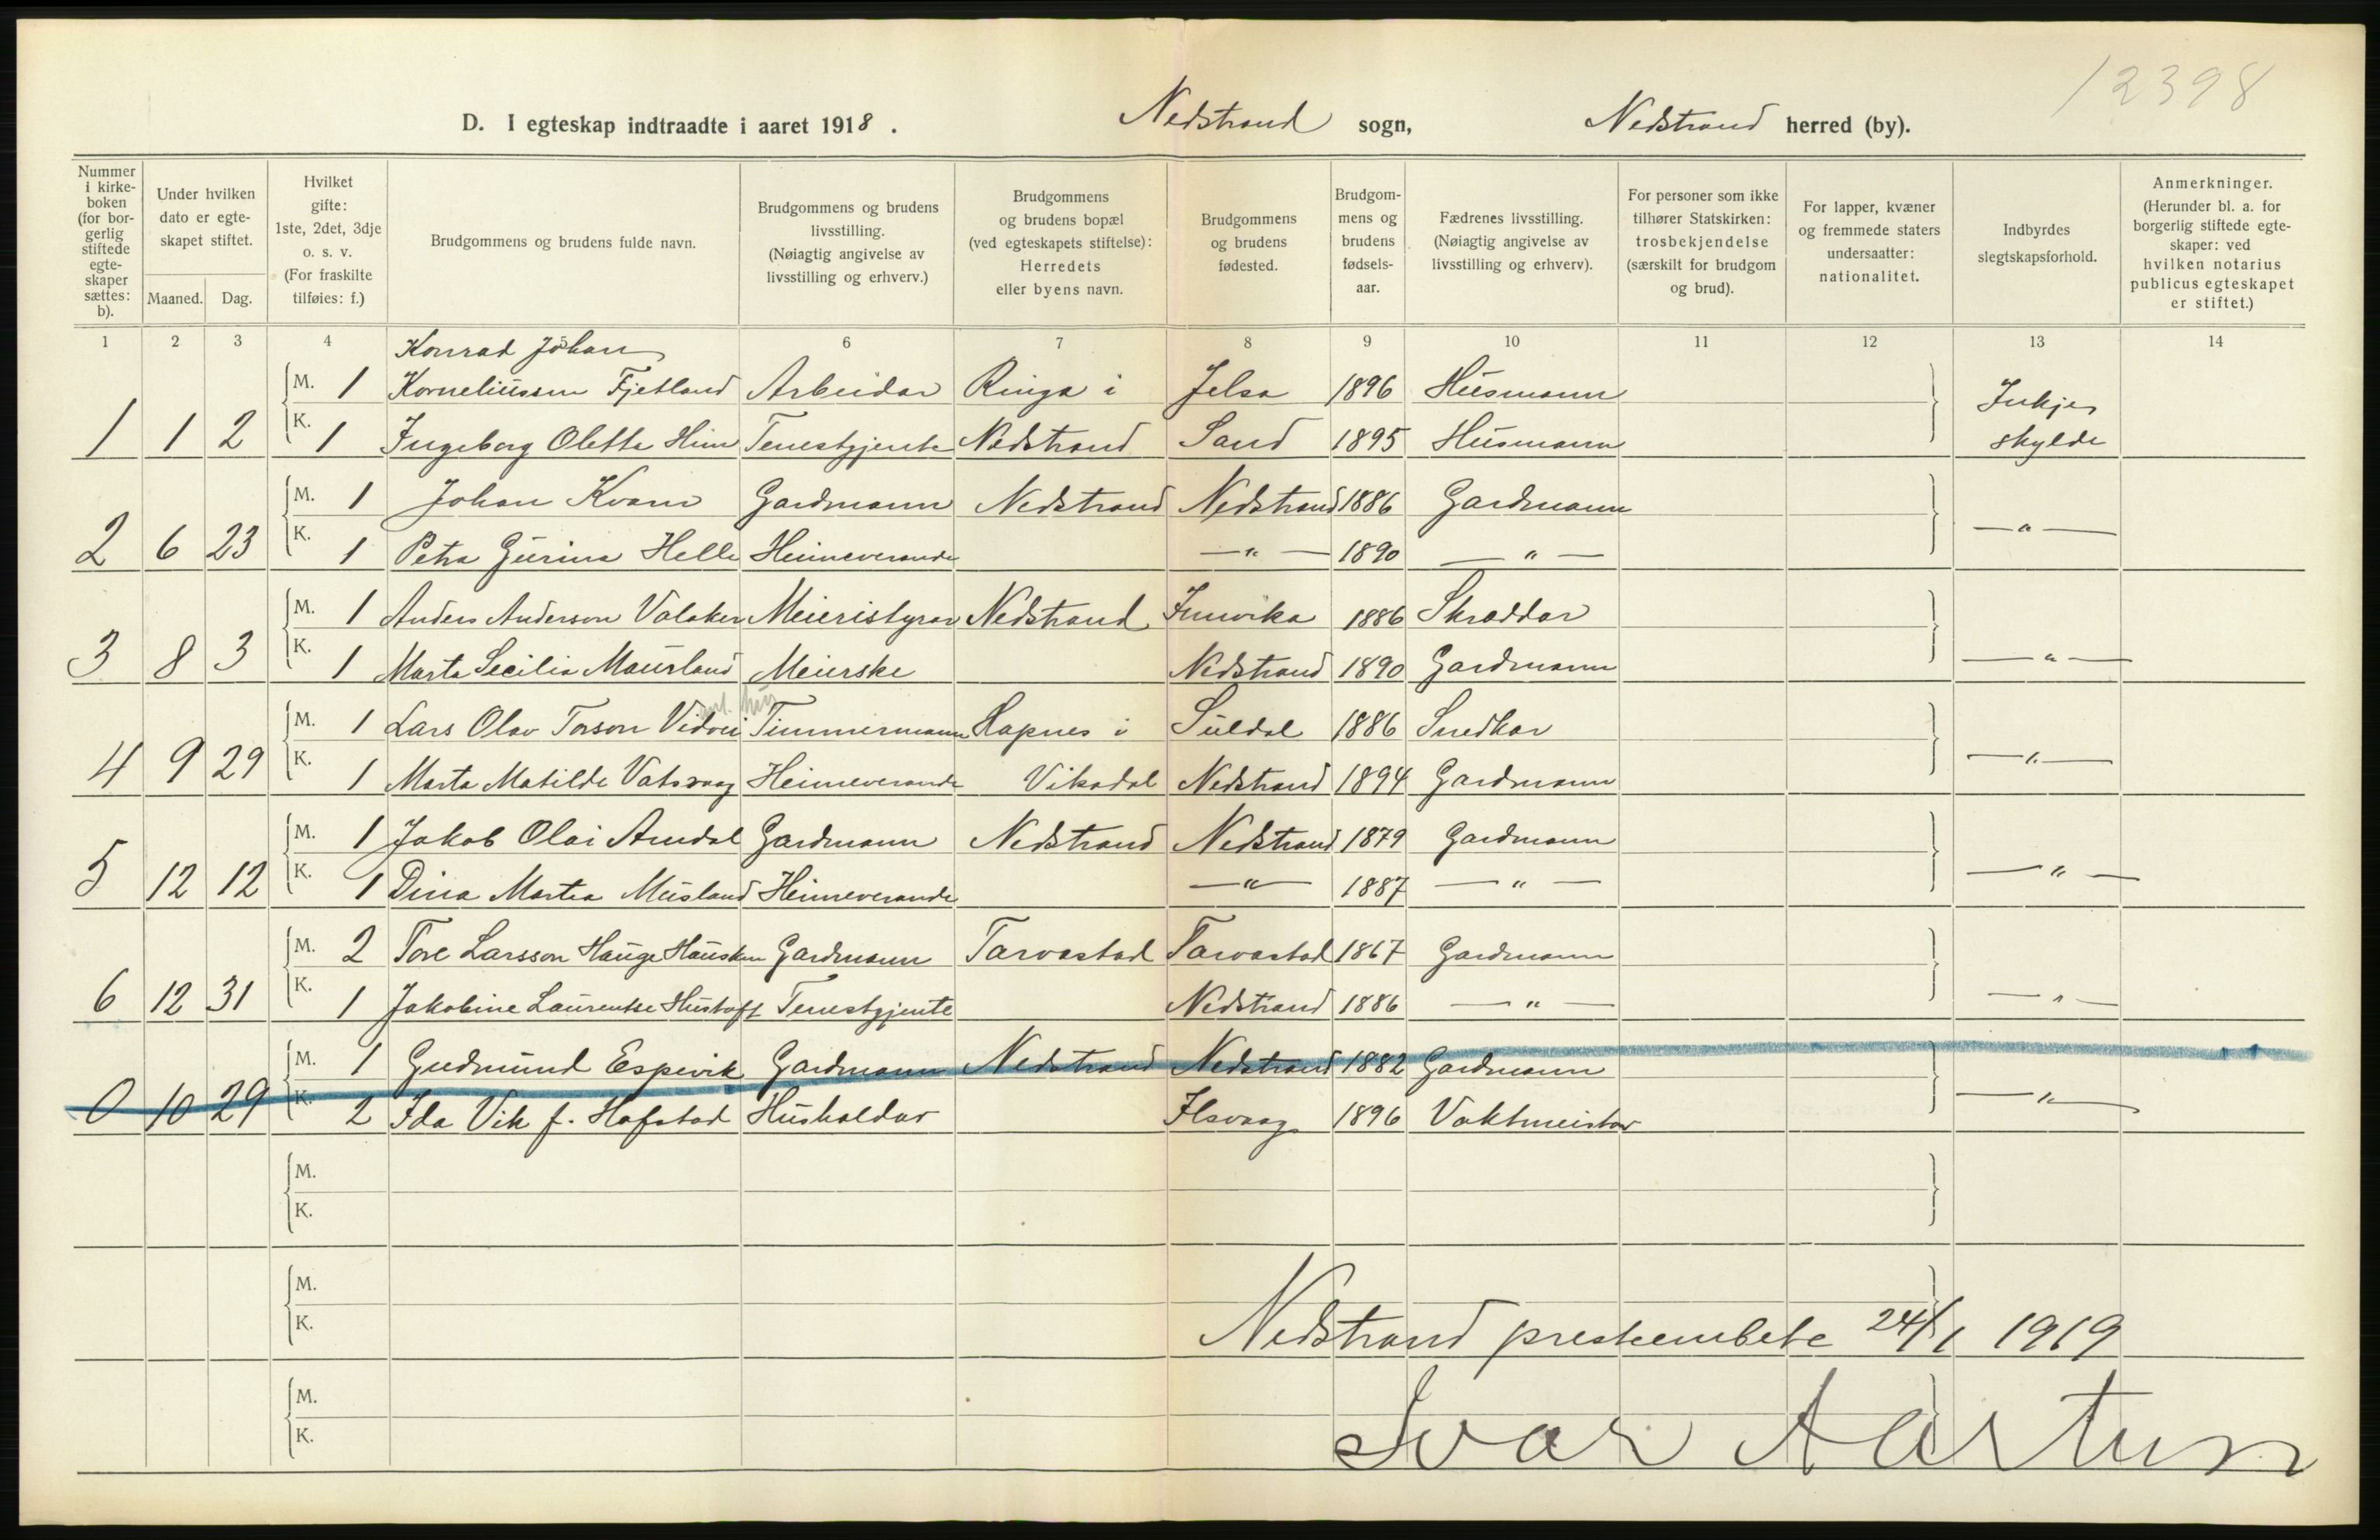 12398
D. I egteskap indtraadte i aaret 1918. Nedstrand sogn, Nedstrand herred (by).
Nummer i kirkeboken (for borgerlig stiftede egteskaper sættes: b).
Under hvilken dato er egteskapet stiftet.
Maaned. Dag.
Hvilket gifte: 1ste, 2det, 3dje o. s. v. (For fraskilte tilføies: f.)
Brudgommens og brudens fulde navn.
Brudgommens og brudens livsstilling. (Nøiagtig angivelse av livsstilling og erhverv.)
Brudgommens og brudens bopæl (ved egteskapets stiftelse): Herredets eller byens navn.
Brudgommens og brudens fødested.
Brudgommens og brudens fødselsaar.
Fædrenes livsstilling. (Nøiagtig angivelse av livsstilling og erhverv).
For personer som ikke tilhører Statskirken: trosbekjendelse (særskilt for brudgom og brud).
For lapper, kvæner og fremmede staters undersaatter: nationalitet.
Indbyrdes slegtskapsforhold.
Anmerkninger. (Herunder bl. a. for borgerlig stiftede egteskaper: ved hvilken notarius publicus egteskapet er stiftet.)
1 2 3 4 5 6 7 8 9 10 11 12 13 14
Konrad Johan
M. 1 Korneliussen Fjetland Arbeidar Ringa i Jelsa 1896 Husmann Inkje
1 1 2 K. 1 Ingeborg Olette Him Tenestgjente Nedstrand Sand 1895 Husmann skylde
M. 1 Johan Kvam Gardmann Nedstrand Nedstrand 1886 Gardmann
2 6 23 K. 1 Petra Gurina Helle Heimeverande —"— 1890 —"— —"—
M. 1 Anders Anderson Valaker Meieristyrar Nedstrand Innvika 1886 Skræddar
3 8 3 K. 1 Marta Secilia Maurland Meierske Nedstrand 1890 Gardmann —"—
M. 1 Lars Olav Torson Vidvei Timmermann Hapnes i Suldal 1886 Snedkar
4 9 29 K. 1 Marta Matilde Vatsvaag Heimeverande Vikadal Nedstrand 1894 Gardmann —"—
M. 1 Jakob Olai Amdal Gardmann Nedstrand Nedstrand 1879 Gardmann
5 12 12 K. 1 Dina Martea Musland Heimeverande —"— 1887 —"— —"—
M. 2 Tore Larsson Hauge Hausken Gardmann Tarvastad Tarvastad 1867 Gardmann
6 12 31 K. 1 Jakobine Laurentse Hustoft Tenestgjente Nedstrand 1886 —"— —"—
M. 1 Gudmund Espevik Gardmann Nedstrand Nedstrand 1882 Gardmann
0 10 29 K. 2 Ida Vik f. Hafstad Hushaldar Ilsvaag 1896 Vaktmeistar —"—
M.
K.
M.
K. Nedstrand prestembete 24/1 1919
M.
K. Ivar Aartun